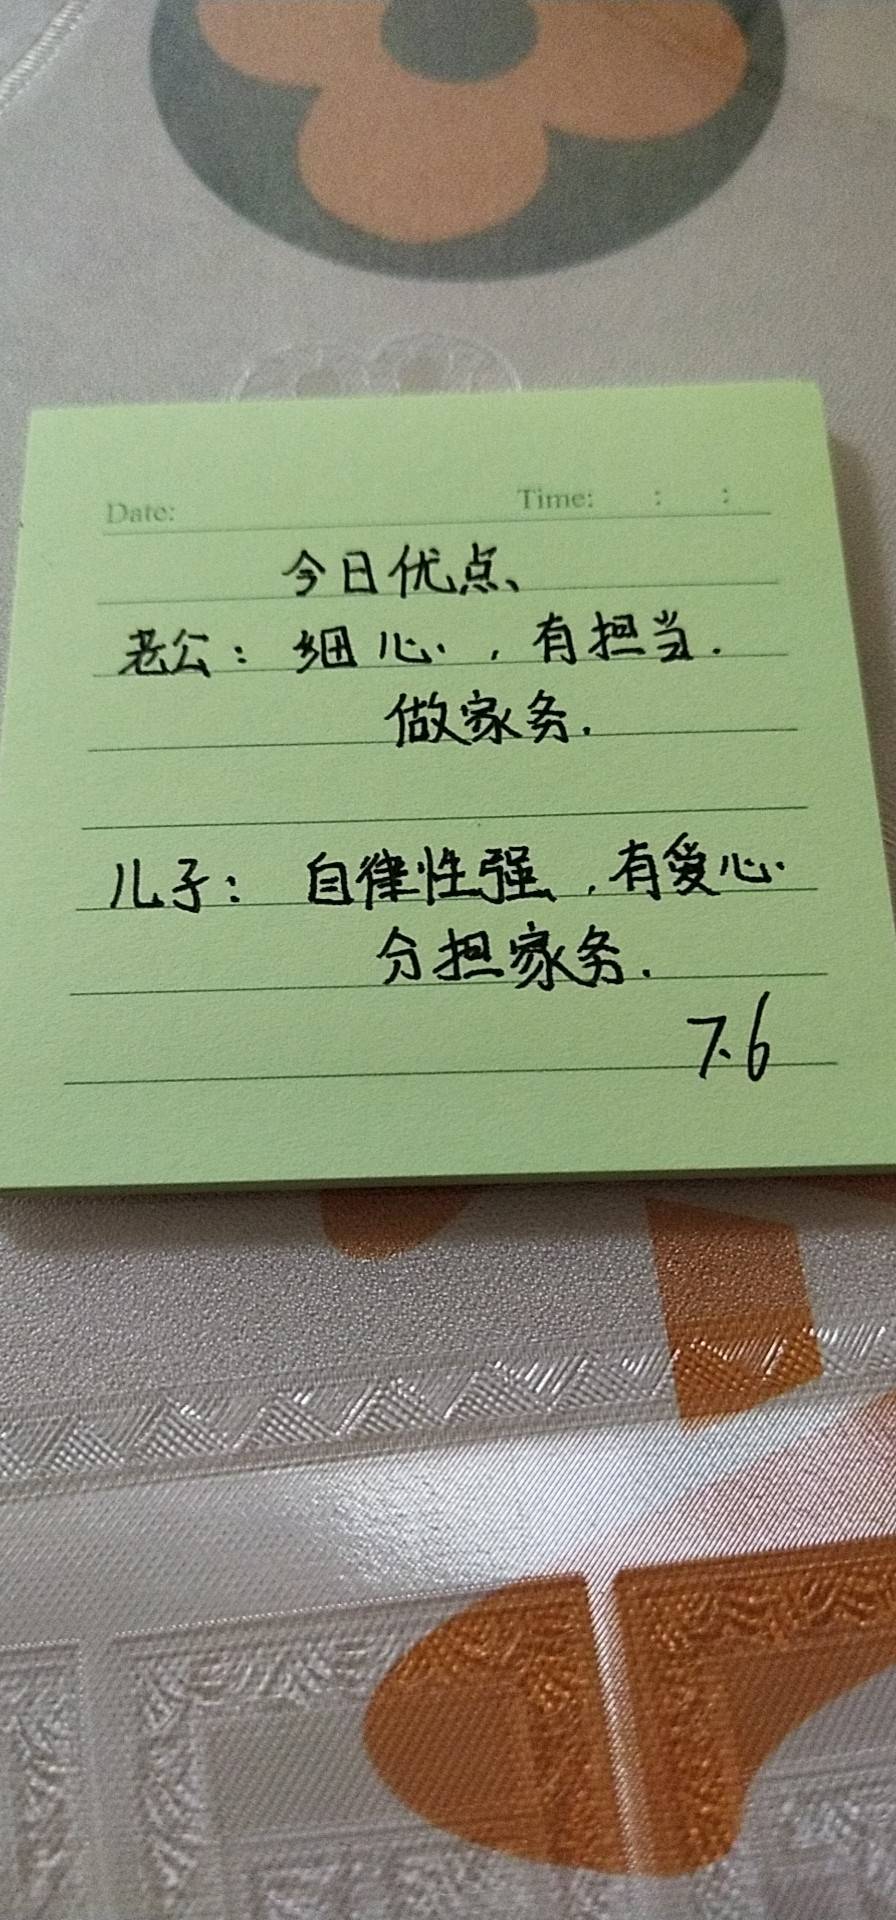 Date: Time: : :
今日优点、
老公：细心，有担当.
做家务.
儿子：自律性强，有爱心.
分担家务.
7.6